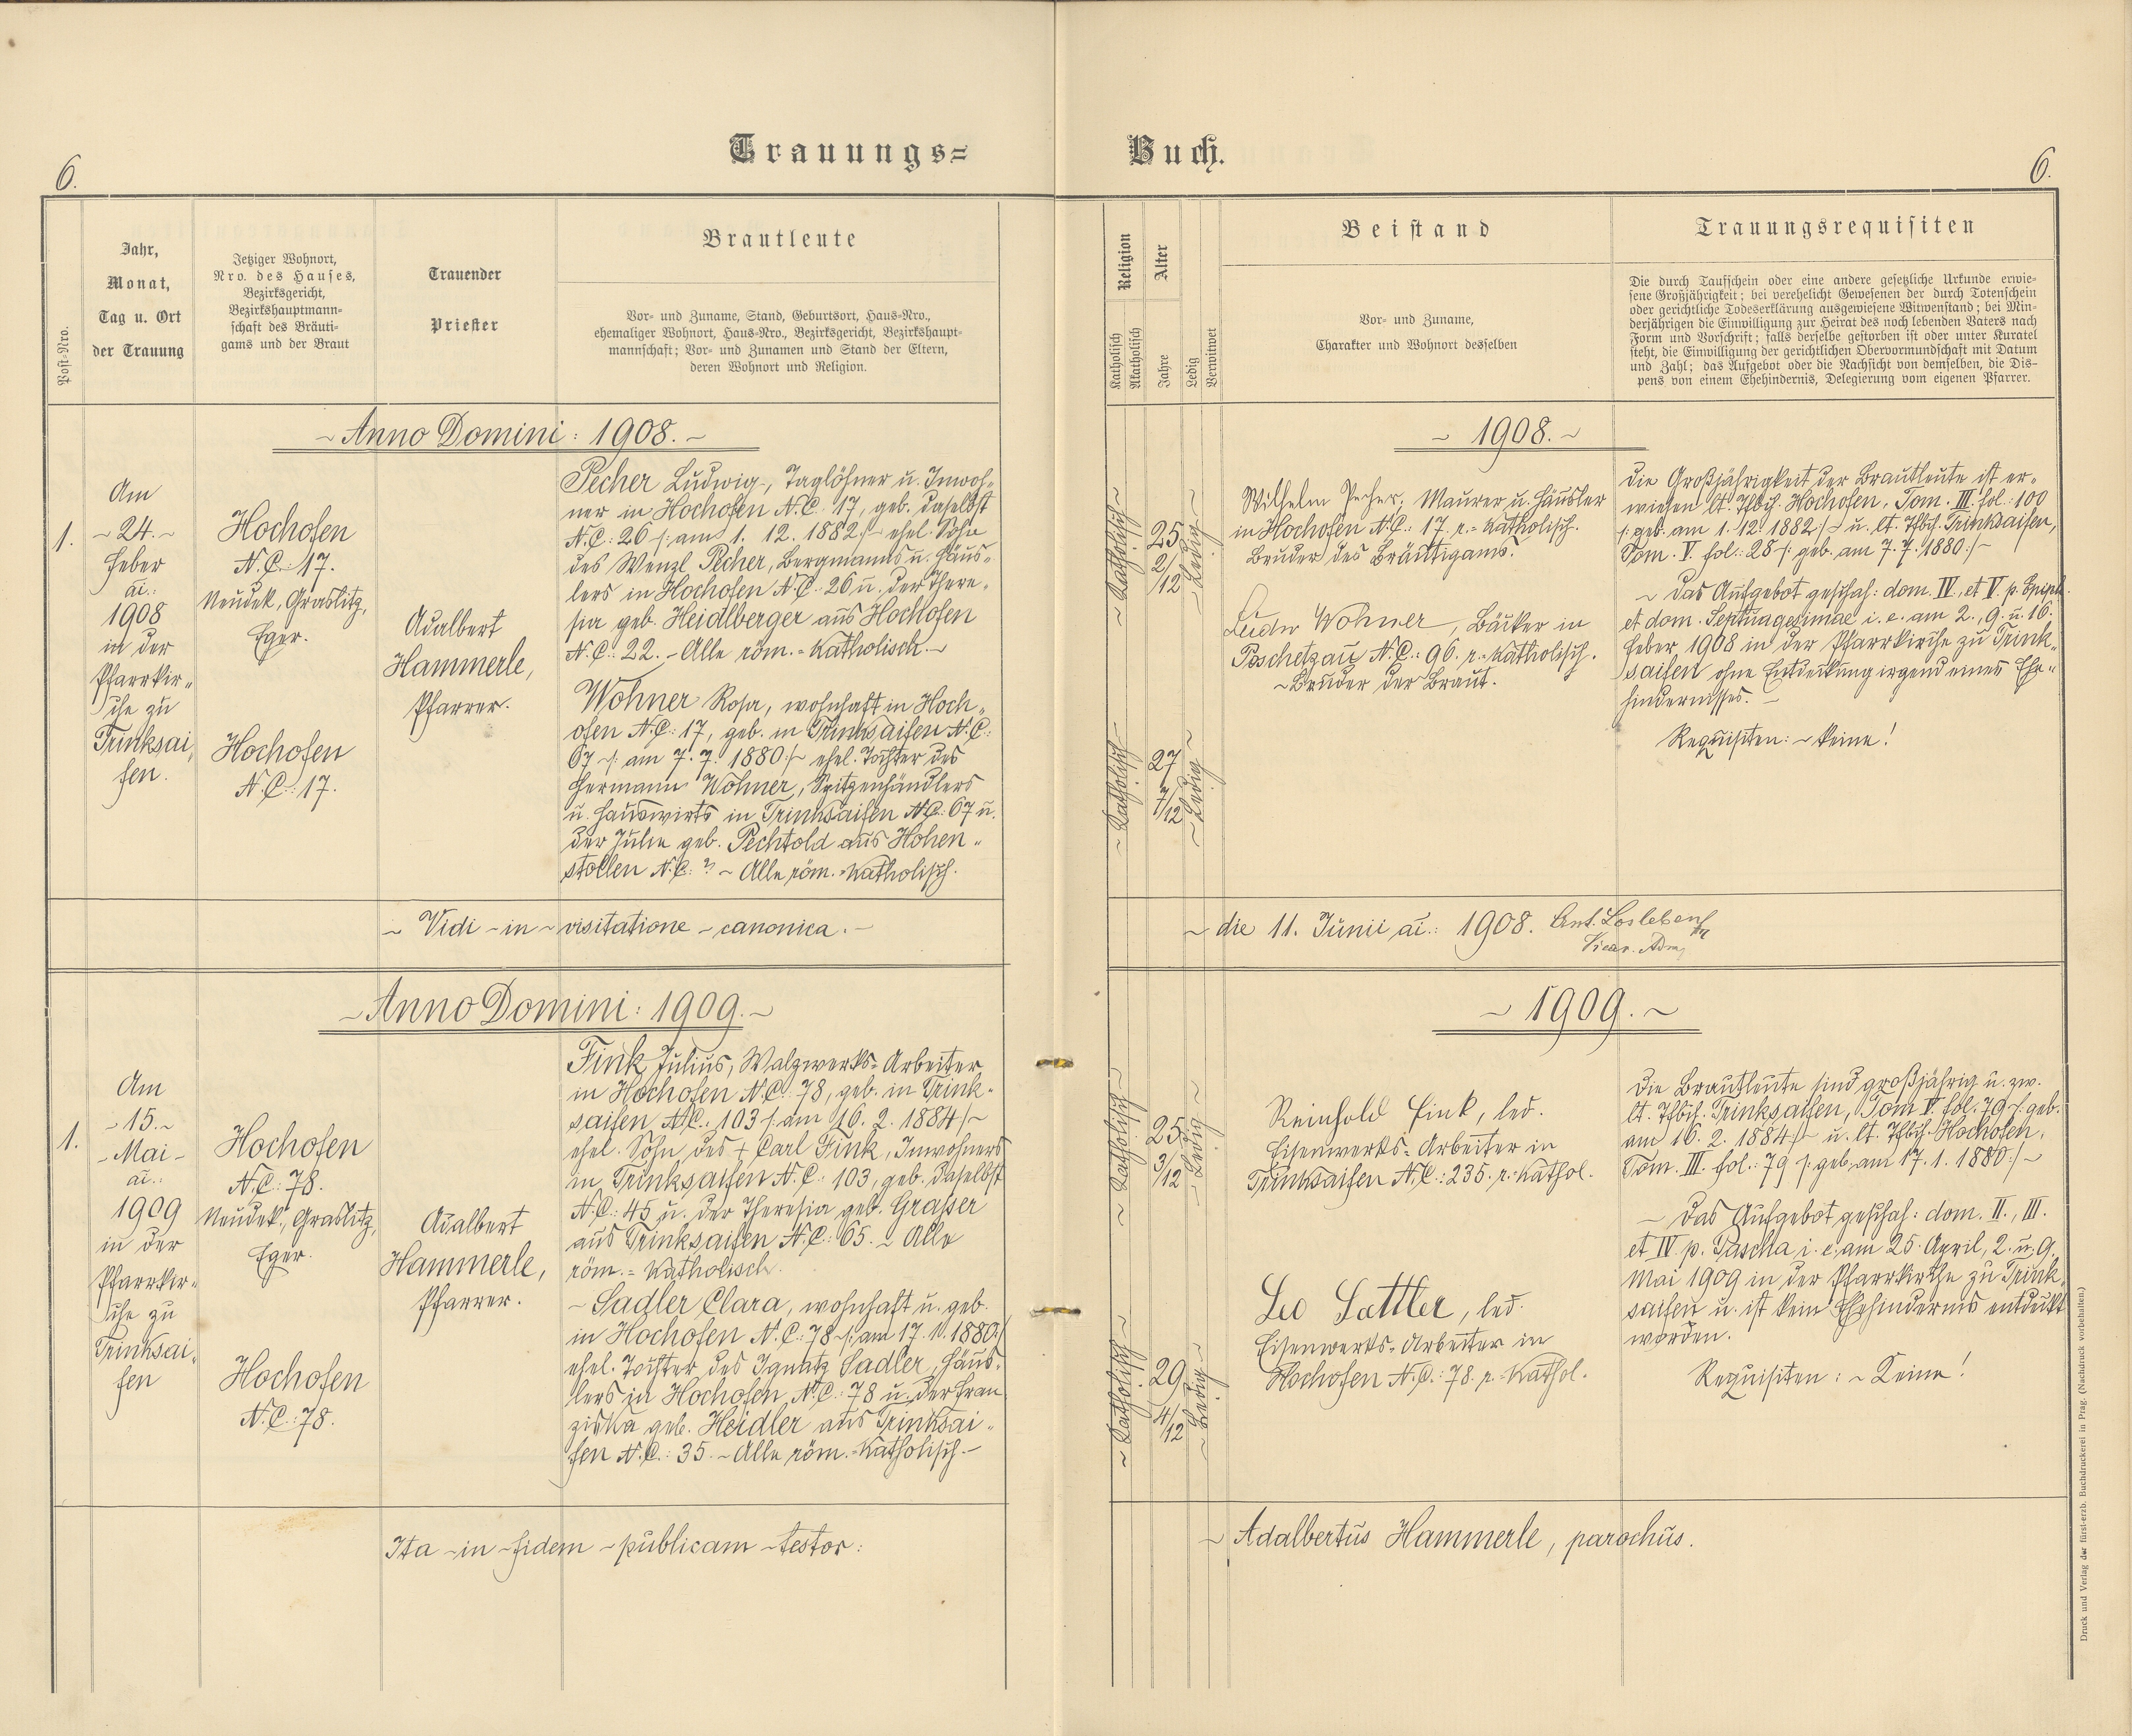 Trauungs=
Buch.
6.
6.
Post-Nro.
Jahr,
Monat,
Tag u. Ort
der Trauung
Jetziger Wohnort,
Nro. des Hauses,
Bezirksgericht,
Bezirkshauptmann-
schaft des Bräuti-
gams und der Braut
Trauender
Priester
Brautleute
Vor- und Zuname, Stand, Geburtsort, Haus-Nro.,
ehemaliger Wohnort, Haus-Nro., Bezirksgericht, Bezirkshaupt-
mannschaft; Vor- und Zunamen und Stand der Eltern,
deren Wohnort und Religion.
Religion
Katholisch
Akatholisch
Alter
Jahre
Ledig
Verwitwet
Beistand
Vor- und Zuname,
Charakter und Wohnort desselben
Trauungsrequisiten
Die durch Taufschein oder eine andere gesetzliche Urkunde erwie-
sene Großjährigkeit; bei verehelicht Gewesenen der durch Totenschein
oder gerichtliche Todeserklärung ausgewiesene Witwenstand; bei Min-
derjährigen die Einwilligung zur Heirat des noch lebenden Vaters nach
Form und Vorschrift; falls derselbe gestorben ist oder unter Kuratel
steht, die Einwilligung der gerichtlichen Obervormundschaft mit Datum
und Zahl; das Aufgebot oder die Nachsicht von demselben, die Dis-
pens von einem Ehehindernis, Delegierung vom eigenen Pfarrer.
~ Anno Domini: 1908. ~
~ 1908. ~
1.
Am
~ 24. ~
Feber
ai.:
1908
in der
Pfarrkir-
che zu
Trinksai-
fen.
Hochofen
N.C. 17.
Neudek, Graslitz,
Eger.
Hochofen
N.C.: 17.
Adalbert
Hammerle,
Pfarrer.
Pecher Ludwig, Taglöhner u. Inwoh-
ner in Hochofen N.C. 17, geb. daselbst
N.C: 26 /: am 1. 12. 1882 :/ ehel. Sohn
des Wenzl Pecher, Bergmanns u. Häus-
lers in Hochofen N.C. 26 u. der There-
sia geb. Heidlberger aus Hochofen
N.C.: 22. ~ Alle röm.=katholisch. ~
Wohner Rosa, wohnhaft in Hoch-
ofen N.C: 17, geb. in Trinksaifen N.C:
67 /: am 7. 7. 1880 :/ ehel. Tochter des
Hermann Wohner, Spitzenhändlers
u. Hauswirts in Trinksaifen N.C: 67 u.
der Julie geb. Pechtold aus Hohen-
stollen N.C: ? ~ Alle röm.=katholisch.
~ Katholisch ~
25
2/12
~ Ledig ~
~ Katholisch ~
27
7/12
~ Ledig ~
Wilhelm Pecher, Maurer u. Häusler
in Hochofen N.C.: 17. r.=katholisch.
Bruder des Bräutigams.
Wohner, Bäcker in
Poschetzau N.C.: 96. r.=katholisch.
~ Bruder der Braut.
Die Großjährigkeit der Brautleute ist er-
wiesen lt. Tfbch. Hochofen, Tom. III. fol.: 100
/: geb. am 1. 12. 1882 :/ u. lt. Tfbch. Trinksaifen,
Tom. V. fol.: 28 /: geb. am 7. 7. 1880 :/ ~
~ Das Aufgebot geschah: dom. IV. et V. p. Epiph.
et dom. Septuagesimae i. e. am 2., 9. u. 16.
Feber 1908 in der Pfarrkirche zu Trink-
saifen ohne Entdeckung irgend eines Ehe-
hindernisses. ~
Requisiten: ~ keine!
~ Vidi ~ in ~ visitatione ~ canonica. ~
~ die 11. Junii ai.: 1908. Ant. Losleben
Vicar. Adm.
~ Anno Domini: 1909. ~
~ 1909. ~
1.
Am
~ 15. ~
~ Mai ~
ai.:
1909
in der
Pfarrkir-
che zu
Trinksai-
fen
Hochofen
N.C: 78.
Neudek, Graslitz,
Eger.
Hochofen
N.C.: 78.
Adalbert
Hammerle,
Pfarrer.
Fink Julius, Walzwerks=Arbeiter
in Hochofen N.C.: 78, geb. in Trink-
saifen N.C.: 103 /: am 16. 2. 1884 :/ ~
ehel. Sohn des + Carl Fink, Inwohners
in Trinksaifen N.C.: 103, geb. daselbst
N.C: 45 u. der Theresia geb. Grasser
aus Trinksaifen N.C: 65. ~ Alle
röm.=katholisch.
~ Sadler Clara, wohnhaft u. geb.
in Hochofen N.C.: 78 /: am 17. 1. 1880 :/
ehel. Tochter des Ignatz Sadler, Häus-
lers in Hochofen, N.C.: 78 u. der Fran-
ziska geb. Heidler aus Trinksai-
fen N.C.: 35. ~ Alle röm.=katholisch. ~
~ Katholisch ~
25
3/12
~ Ledig ~
~ Katholisch ~
29
4/12
~ Ledig ~
Reinhold Fink, led.
Eisenwerks=Arbeiter in
Trinksaifen N.C.: 235. r.=kathol.
Leo Sattler, led.
Eisenwerks=Arbeiter in
Hochofen N.C.: 78. r.=kathol.
Die Brautleute sind großjährig u. zw.
lt. Tfbch. Trinksaifen, Tom V. fol. 79 /: geb.
am 16. 2. 1884 :/ u. lt. Tfbch. Hochofen,
Tom. III. fol.: 79 /: geb. am 17. 1. 1880 :/ ~
~ Das Aufgebot geschah: dom. II., III.
et IV. p. Pascha i. e. am 25. April, 2. u. 9.
Mai 1909 in der Pfarrkirche zu Trink-
saifen u. ist kein Ehehindernis entdeckt
worden.
Requisiten: ~ Keine!
Ita ~ in ~ fidem ~ publicam ~ testor:
~ Adalbertus Hammerle, parochus.
Druck und Verlag der fürst-erzb. Buchdruckerei in Prag. (Nachdruck vorbehalten.)